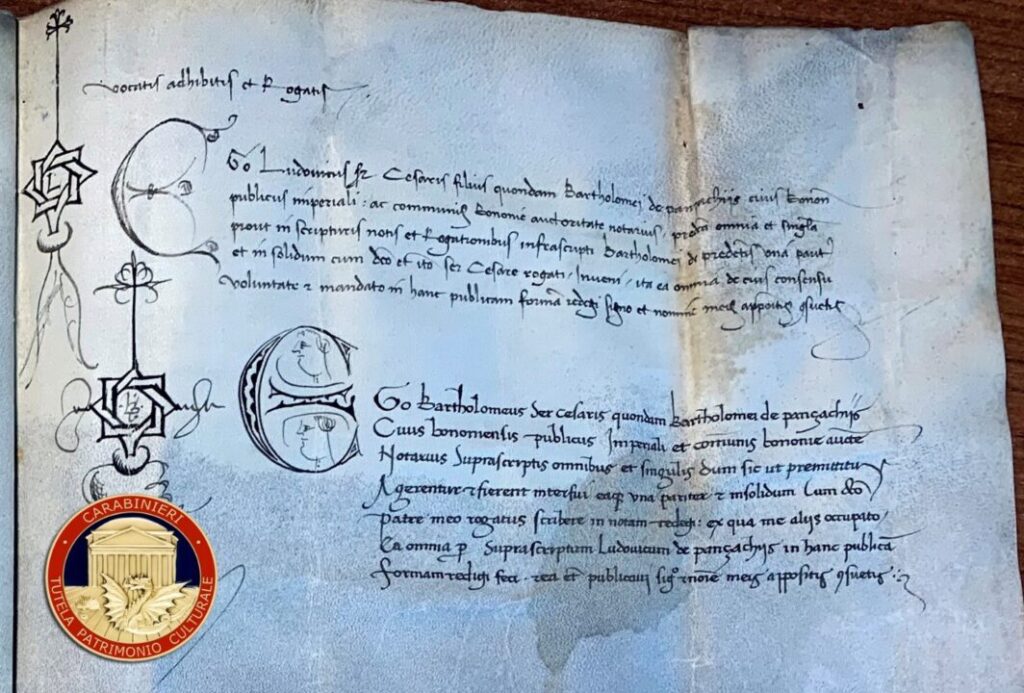 vocatis adhibitis et Rogatis
Ego Ludovicus Cesaris filius quondam Bartholomei de panzachijs civis bonon
publicus imperiali : ac communis bononie auctoritate notarius, omnia et singla
prout in scripturis notis et Rogationibus infrascripti Bartholomei de una
et in solidum cum dco et Ser Cesare rogati, inveni, ita ea omnia de eius consensu
voluntate et mandato in hanc publicam forma redegi signo et nomine meis appositis
Ego Bartholomeus Ser Cesaris quondam Bartholomei de panzachijs
Civis bononiensis publicus Imperiali et comunis bononie aucte
Notarius Suprascriptis omnibus et singulis dum sic ut premittitur
Agerentur et fierent interfui eaque una pariter et insolidum Cum dco
patre meo rogatus scribere in notam redegi : ex qua me alijs occupato
Ea omnia p Suprascriptum Ludovicum de panzachijs in hanc publica
formam redigi feci et publicavi meis appositis
CARABINIERI
TUTELA PATRIMONIO CULTURALE